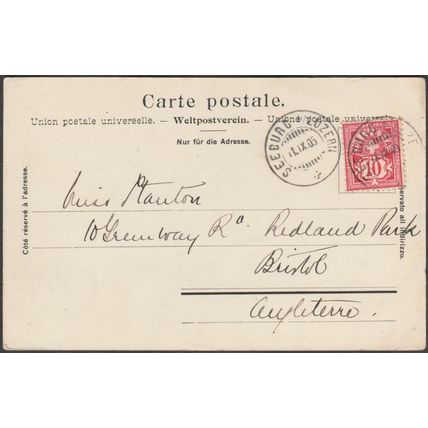 Carte postale.
Union postale universelle. — Weltpostverein. — Unione postale universale
Nur für die Adresse.
SEEBURG b/LUZERN
1.IX.05
10
Côté réservé à l'adresse.
Miss Stanton
10 Greenway Rd Redland Park
Bristol
Angleterre.
riservato all'indirizzo.